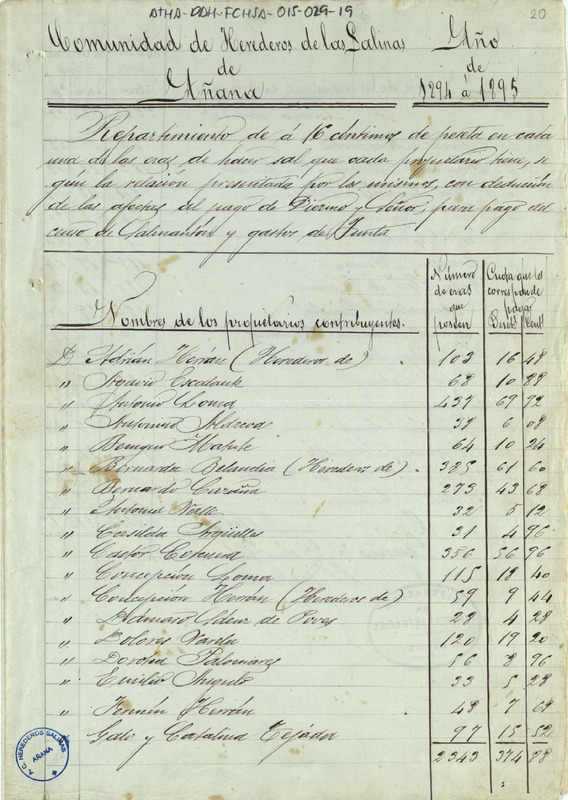 ATHA-DDH-FCHSA-015-029-19
20
Comunidad de Herederos de las Salinas
de
Añana
Año
de
1894 á 1895
Repartimiento de á 16 céntimos de peseta en cada
una de las eras de hacer sal que cada propietario tiene, se
gún la relación presentada por los mismos, con deducción
de las afectas al pago de Diezmo y Señor, para pago del
censo de Salmantón y gastos de Junta
Nombres de los propietarios contribuyentes.
Número
de eras
que
poseen
Cuota que les
corresponde
pagar
Peset.
Cent.
D. Adrián Herrán (Herederos de) . 103 16 48
" Escalante 68 10 88
" Antonio Loma 437 69 92
" Antonino Aldecoa 38 6 08
" Benigno Matute 64 10 24
" Bernarda Belandia (Herederos de) . 385 61 60
" Bernardo 273 43 68
" Antonia 32 5 12
" Casilda Argüelles 31 4 96
" Castor 356 56 96
" Concepción Loma 115 18 40
" Concepción Herrán (Herederos de) 59 9 44
" Dámaso Sáenz de Pores 28 4 28
" Dolores Varela 120 19 20
" Dorotea Palomares 56 8 96
" Emilio Angulo 33 5 28
" Fermín Herrán 48 7 68
" Galo y Catalina Tejada 97 15 52
2343 374 88
T.C. HEREDEROS SALINAS
AÑANA